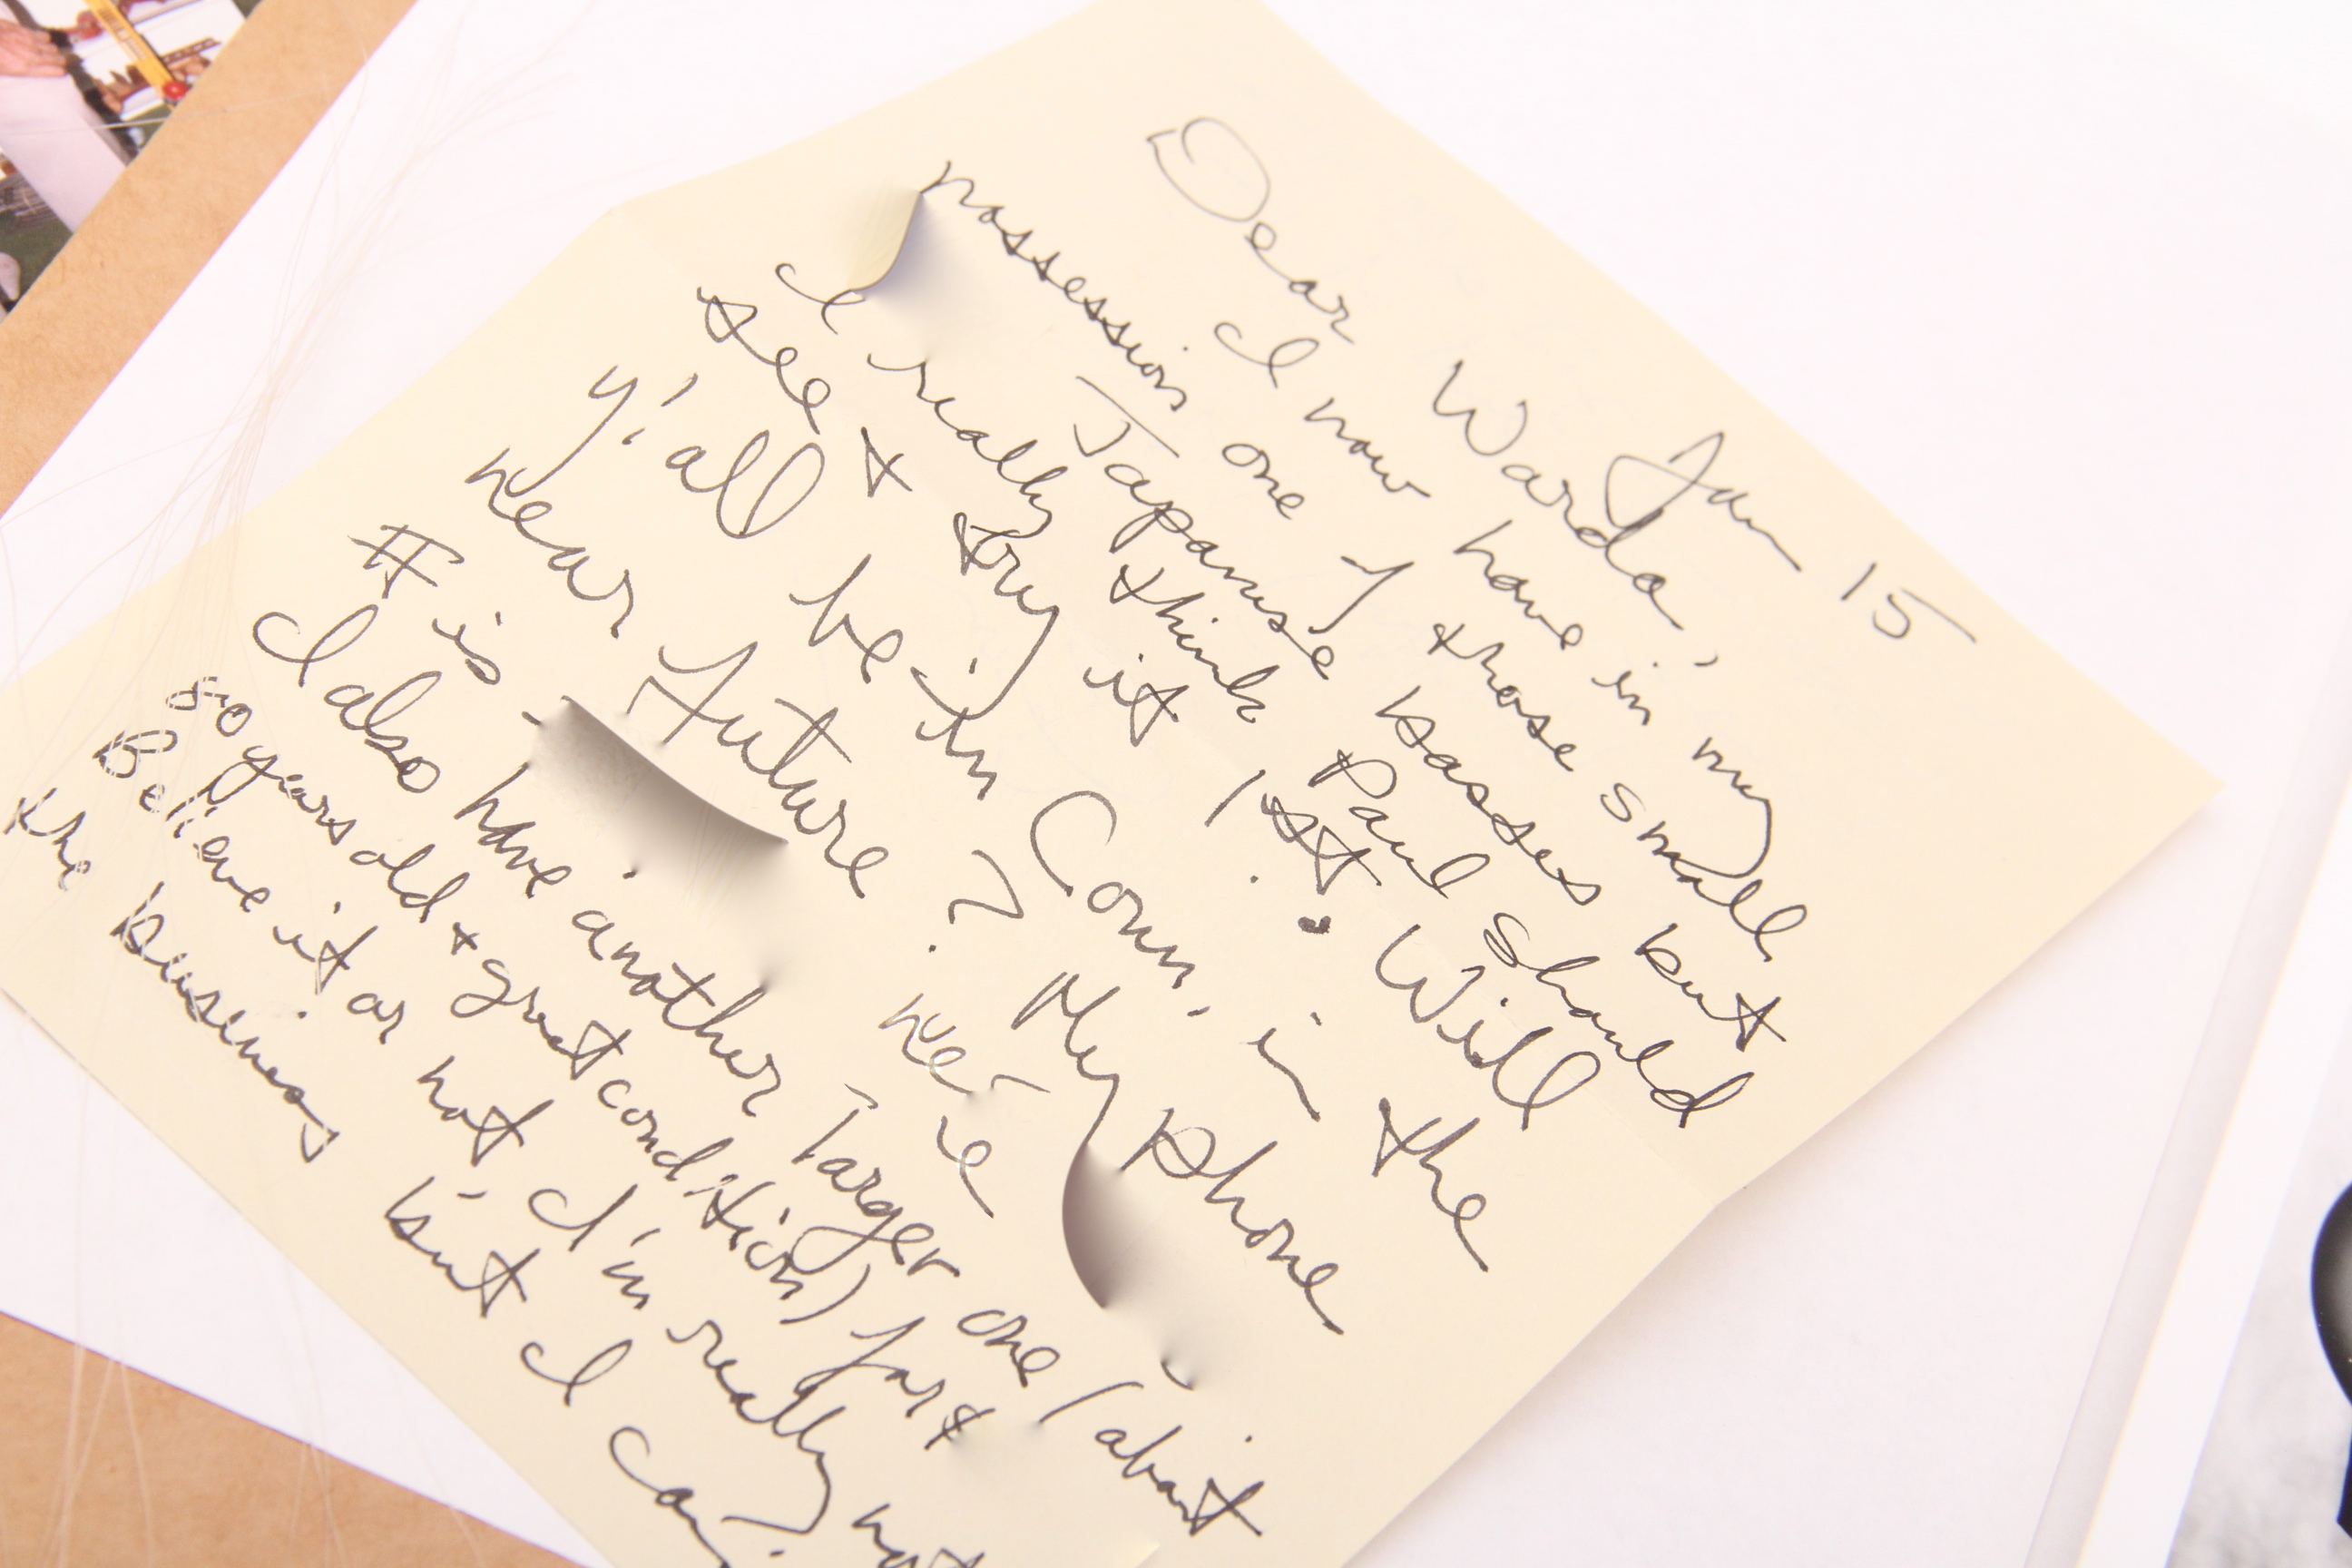 Jan 15
Dear Warda,
I now have in my
possession one of those small
Japanese basses but
I really think Paul should
see & try it 1st. Will
y'all be in Conn, in the
near future? My phone
# is
I also have another larger one (about
80 years old & great condition) for
Believe it or not, I'm really not
the business but I can